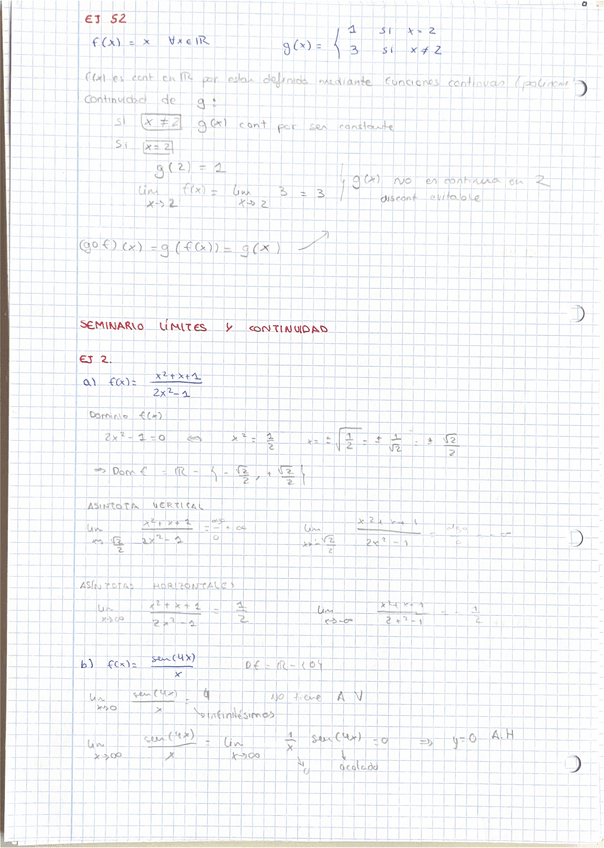 EJ 52
f(x) = x ∀x∈ℝ g(x) = { 1 si x = 2
3 si x ≠ 2
f(x) es cont en ℝ por estar definida mediante funciones continuas
Continuidad de g:
Si x ≠ 2 g(x) cont por ser constante
Si x = 2
g(2) = 1
lim x→2 f(x) = lim x→2 3 = 3 } g(x) no es continua en 2
discont evitable
(gof)(x) = g(f(x)) = g(x)
SEMINARIO LÍMITES Y CONTINUIDAD
EJ 2.
a) f(x) = x²+x+1 / 2x²-1
Dominio f(x)
2x²-1=0 ⇔ x² = 1/2 x = ±√1/2 = ± 1/√2 = ± √2/2
⇒ Dom f = ℝ - { -√2/2, +√2/2 }
ASINTOTA VERTICAL
lim x²+x+1 / 2x²-1 = lim x²+x+1 / 2x²-1 =
ASÍNTOTAS HORIZONTALES
lim x→∞ x²+x+1 / 2x²-1 = 1/2 lim x→-∞ x²+x+1 / 2x²-1 = 1/2
b) f(x) = sen(4x) / x Df = ℝ-{0}
lim x→0 sen(4x) / x = 4 No tiene A V
infinitésimos
lim x→∞ sen(4x) / x = lim x→∞ 1/x sen(4x) = 0 ⇒ y=0 A.H
0 acotada